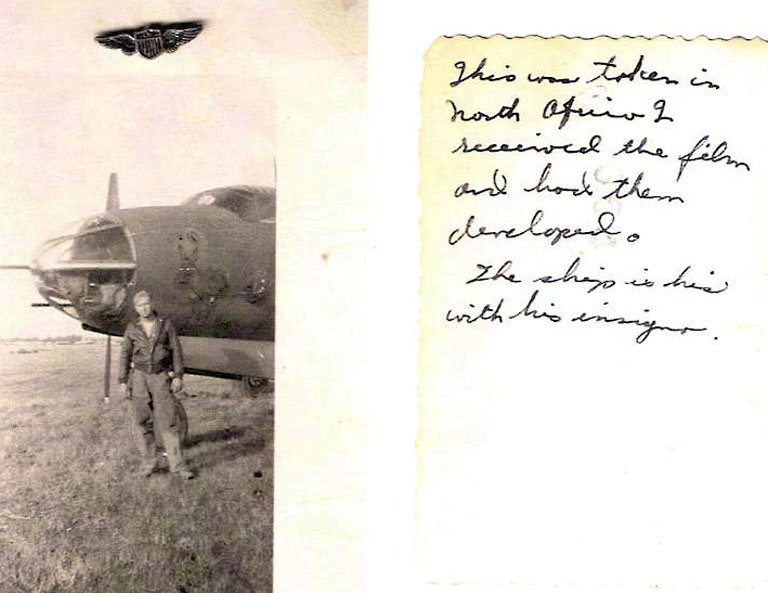 This was taken in
North Africa I
received the film
and had them
developed.
The ship is his
with his insigna.